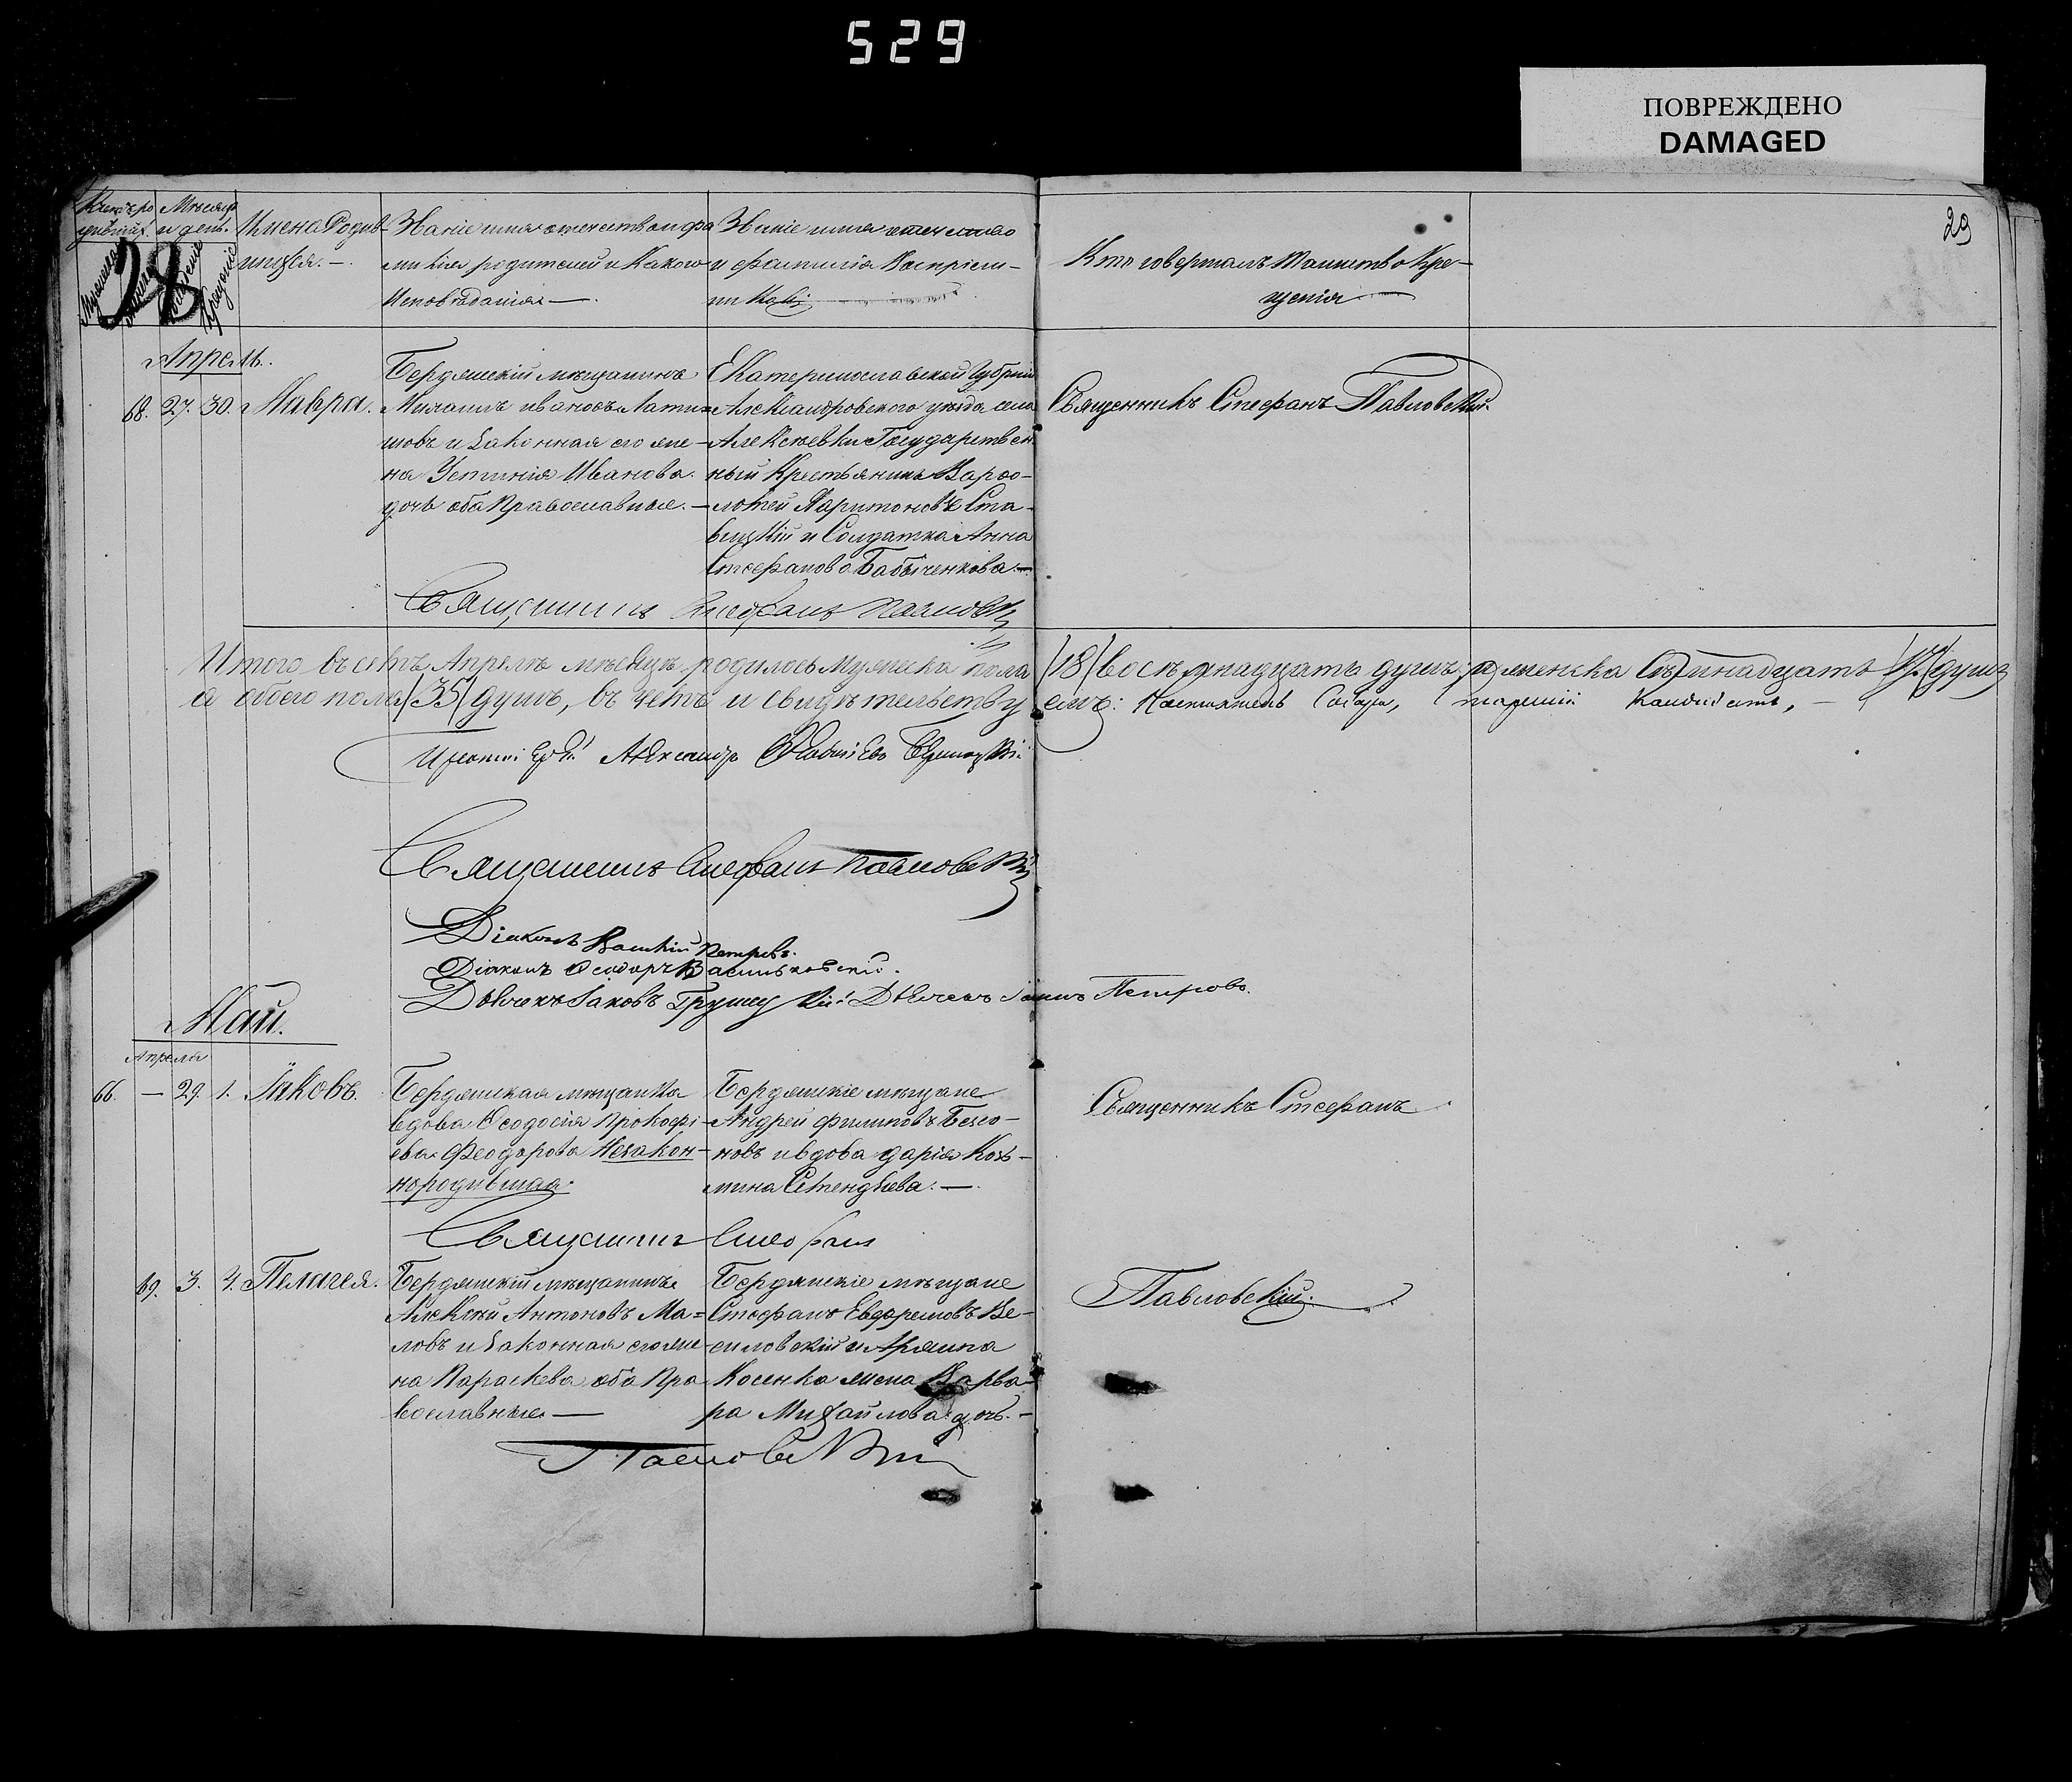 529
ПОВРЕЖДЕНО
DAMAGED
29
28
Мѣсяцъ
и день.
Имена Родив-
шихся. —
Званіе имя отечество и фа
милія родителей и Какого
Исповѣданія —
Званіе имя отечество
и фамилія Воспріем-
никовъ
Кто совершалъ таинство Кре-
щенія —
Апрель.
68. 27. 30. Мавра.
Бердянскій мѣщанинъ
ивановъ
и Законная его же-
на Устинія Иванова
дочь оба Православные. —
Екатеринославской Губерніи
Александровского уѣзда села
Алексѣевки Государствен
ный Крестьянинъ Варфо-
ломей Харитоновъ Ста-
вицкій и Солдатка Анна
Стефанова Бабыченкова. —
Священникъ Стефанъ Павловскій.
Священникъ Стефанъ Павловскій
Итого въ семъ Апрелѣ мѣсяцѣ родилось Мужеска пола /18/ восѣмнадцать душъ, а женска Сѣдмнадцать /17/ душъ
а обоего пола /35/ душъ, въ чемъ и свидѣтельствуемъ: Настоятель Собора, старшій Кандидатъ, —
Александръ
Священникъ Стефанъ Павловскій
Діаконъ Василій Петровъ.
Діаконъ Феодоръ Васильковскій.
Дьячекъ Іаковъ Грушецкій Дьячекъ Іоаннъ Петровъ.
Май.
Апреля
66. — 29. 1. Іаковъ.
Бердянская мѣщанка
вдова Феодосія Прокофі-
ева Феодорова Незакон-
нородившая.
Бердянскіе мѣщане
Андрей Филиповъ
новъ и вдова Дарія Козь-
мина
Священникъ Стефанъ
Священникъ Стефанъ
69. 3. 4. Пелагея.
Бердянскій мѣщанинъ
Алексѣй Антоновъ Ма=
ловъ и Законная его же
на Параскева оба Пра
вославные —
Бердянскіе мѣщане
Стефанъ Евфремовъ Ве-
силовскій и
Косенко жена Варва-
ра Михайлова дочь. —
Павловскій.
Павловскій